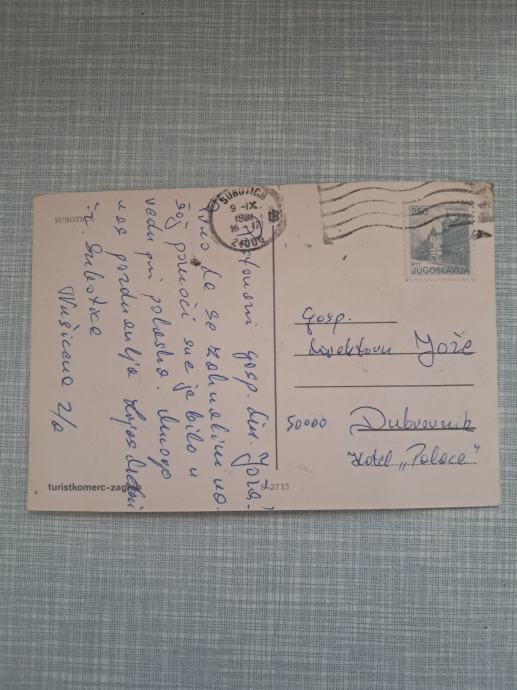 SUBOTICA
SUBOTICA
9-IX.
1981
16-17
24000
2.50
PTT
JUGOSLAVIJA
gosp. dir. Jože,
da se zahvalim na
pomoći sve je bilo u
redu pri polasku. Mnogo
vas pozdravlja Lajos
iz Subotice
2/a
Gosp.
direktoru Jože
50000 Dubrovnik
Hotel „Palace"
turistkomerc-zagreb
S-2715